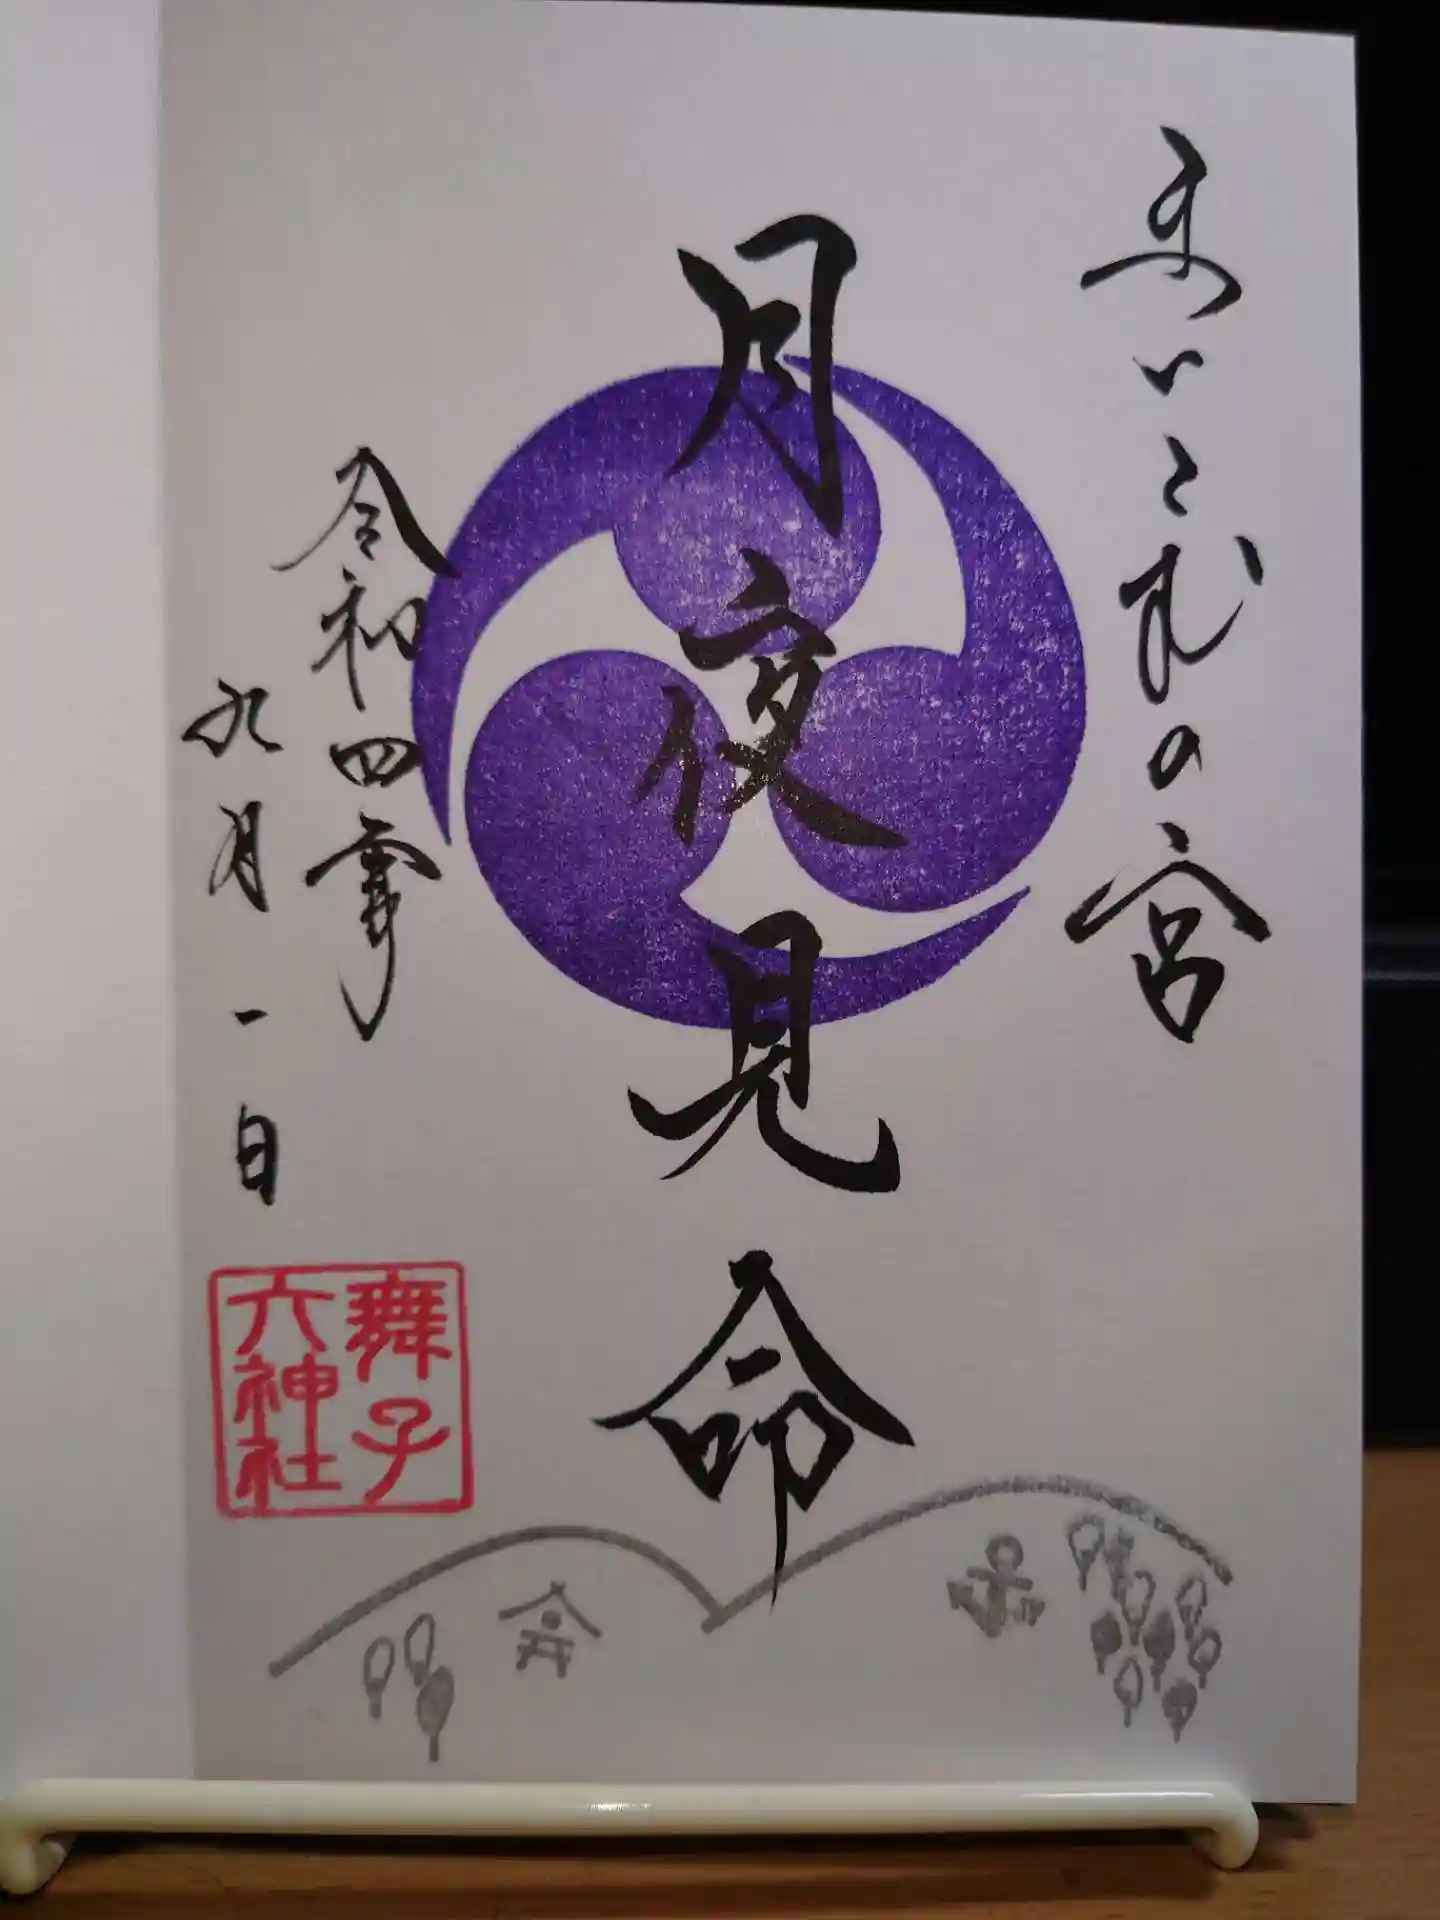 まいこむの宮
月夜見命
令和四年
九月一日
舞子
六神社